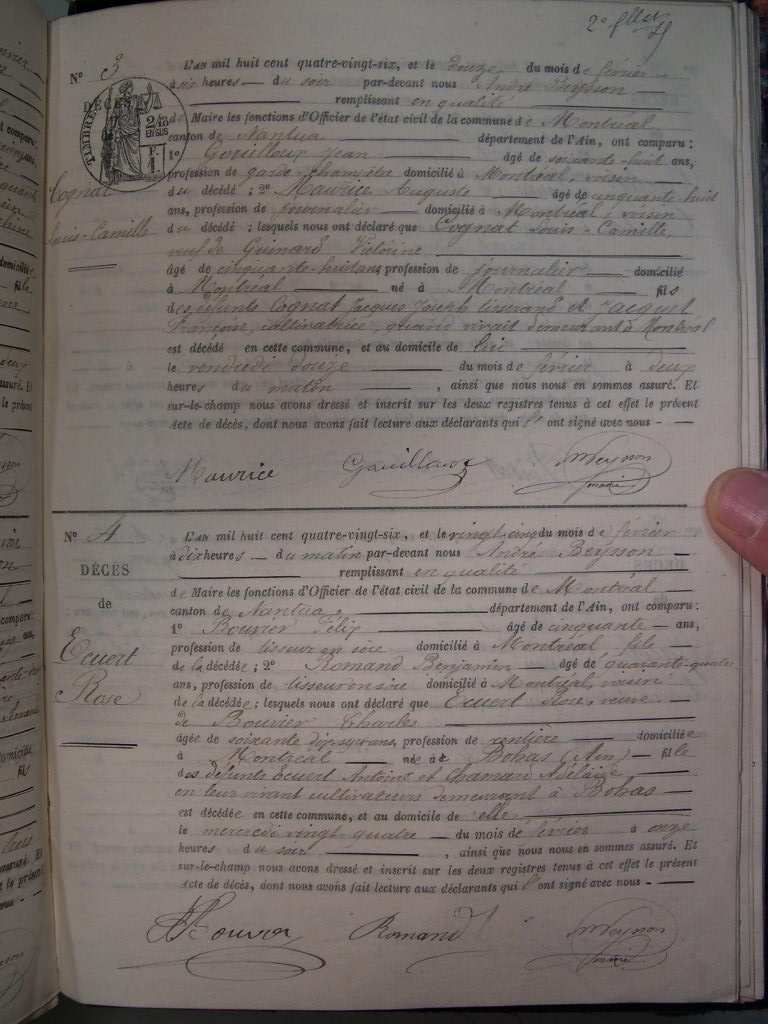 2e
N° 3
DÉCÈS
de
TIMBRES
2/10 EN SUS
Cognat
Louis-Camille
L'an mil huit cent quatre-vingt-six, et le douze du mois de février
à six heures du soir par-devant nous André
remplissant en qualité
de Maire les fonctions d'Officier de l'état civil de la commune de Montréal
canton de Nantua département de l'Ain, ont comparu :
1° Gouilloux Jean âgé de soixante-huit ans,
profession de garde champêtre domicilié à Montréal, voisin
du décédé ; 2° Maurice Auguste âgé de cinquante huit
ans, profession de journalier domicilié à Montréal, voisin
du décédé ; lesquels nous ont déclaré que Cognat Louis-Camille,
veuf de Victorine
âgé de cinquante-huit ans profession de journalier domicilié
à Montréal né à Montréal fils
des défunts Cognat Jacques Joseph tisserand et Jacquet
Françoise, cultivatrice, quand vivait demeurant à Montréal
est décédé en cette commune, et au domicile de lui
le vendredi douze du mois de février à deux
heures du matin, ainsi que nous nous en sommes assuré. Et
sur-le-champ nous avons dressé et inscrit sur les deux registres tenus à cet effet le présent
Acte de décès, dont nous avons fait lecture aux déclarants qui ont signé avec nous
Maurice Gouilloux
N° 4
DÉCÈS
de
Ecuert
Rose
L'an mil huit cent quatre-vingt-six, et le vingt-cinq du mois de février
à dix heures du matin par-devant nous André
remplissant en qualité
de Maire les fonctions d'Officier de l'état civil de la commune de Montréal
canton de Nantua département de l'Ain, ont comparu :
1° Bouvier Félix âgé de cinquante ans,
profession de tisseur en soie domicilié à Montréal fils
de la décédée ; 2° Romand Benjamin âgé de quarante-quatre
ans, profession de tisseur en soie domicilié à Montréal, voisin
de la décédée ; lesquels nous ont déclaré que Ecuert Rose, veuve
de Bouvier Charles
âgée de soixante dix sept ans, profession de rentière domiciliée
à Montréal née à Bohas (Ain) fille
des défunts Ecuert Antoine et Chaman Adélaïde
en leur vivant cultivateurs demeurant à Bohas
est décédée en cette commune, et au domicile de elle
le mercredi vingt quatre du mois de février à onze
heures du soir, ainsi que nous nous en sommes assuré. Et
sur-le-champ nous avons dressé et inscrit sur les deux registres tenus à cet effet le présent
Acte de décès, dont nous avons fait lecture aux déclarants qui ont signé avec nous
Bouvier Romand